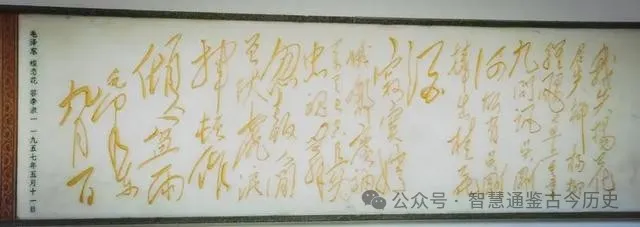 我失杨花
君失柳杨柳
轻飏直上重霄
九问讯吴刚
何所有吴刚
捧出桂花
酒
寂寞嫦
娥舒广袖
万里长空且为
忠魂舞
忽报人间
曾伏虎泪
飞顿作
倾盆雨
毛泽东
毛泽东 蝶恋花 答李淑一 一九五七年五月十一日
公众号·智慧通鉴古今历史